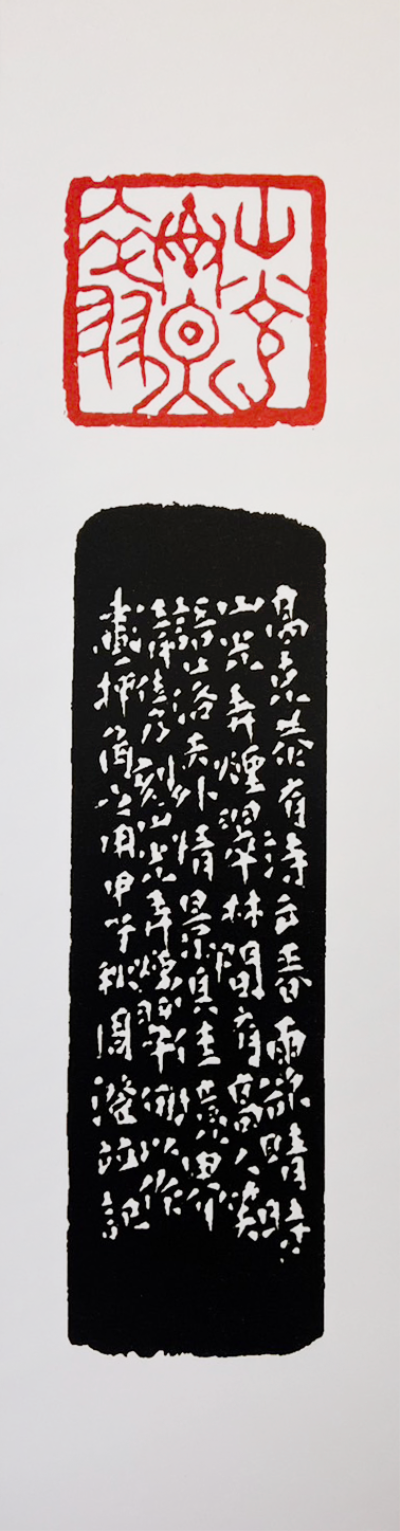 山光弄煙翠
高克恭有詩云春雨欲晴時
山光弄煙翠林間有高人笑
語落天外情景真佳意界
佳乃刻山光弄煙翠句以作
畫押角之用甲子秋周澄並記